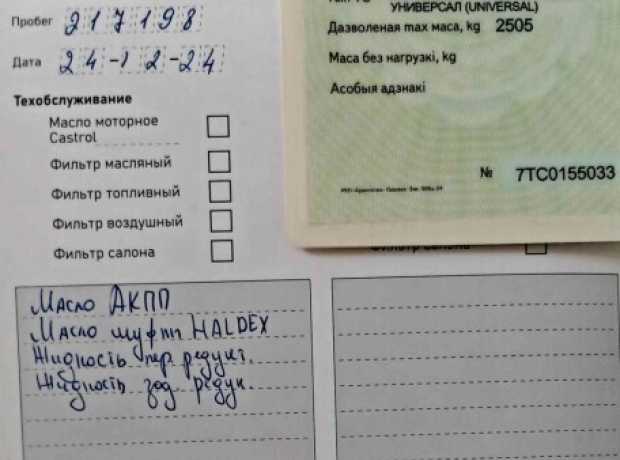 Пробег 217198
Дата 24-12-24
Техобслуживание
Масло моторное
Castrol
Фильтр масляный
Фильтр топливный
Фильтр воздушный
Фильтр салона
Масло АКПП
Масло муфты HALDEX
Жидкость пер редукт.
Жидкость зад редук.
УНИВЕРСАЛ (UNIVERSAL)
Дазволеная max маса, kg 2505
Маса без нагрузкі, kg
Асобыя адзнакі
№ 7TC0155033